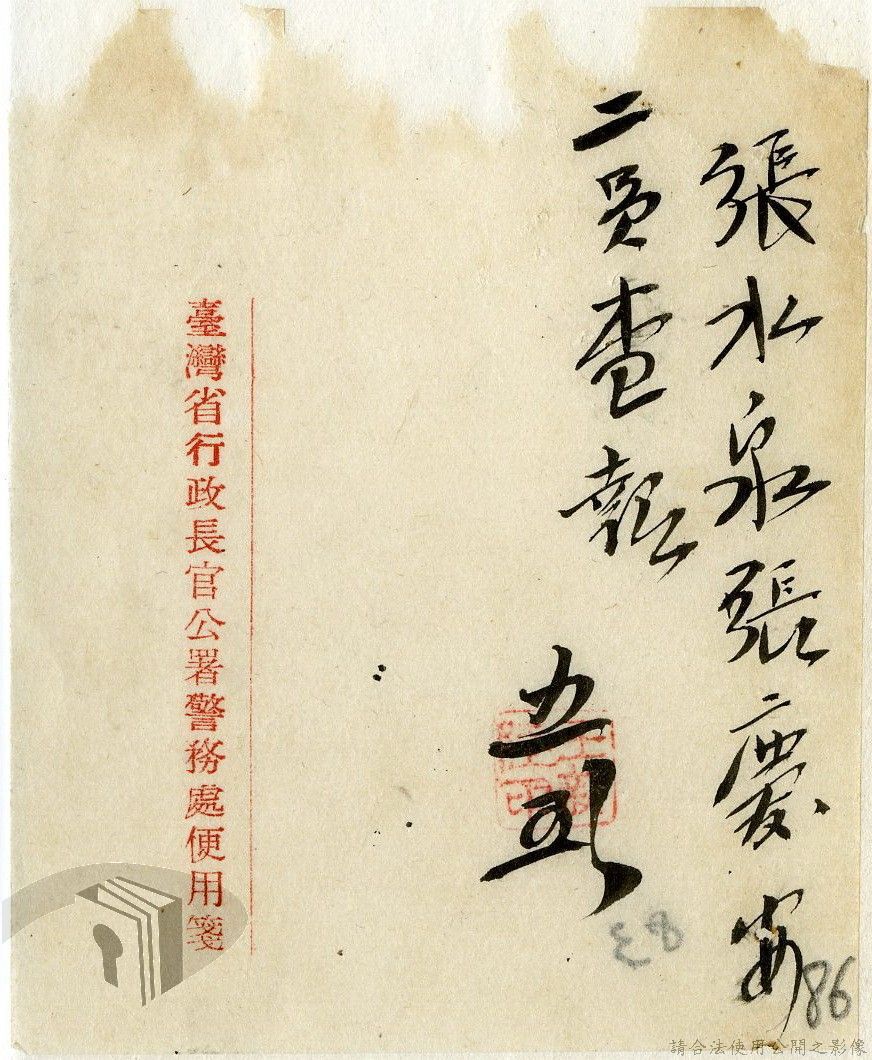 張水泉張慶安
二員查報
五
臺灣省行政長官公署警務處便用箋
86
請合法使用公開之影像